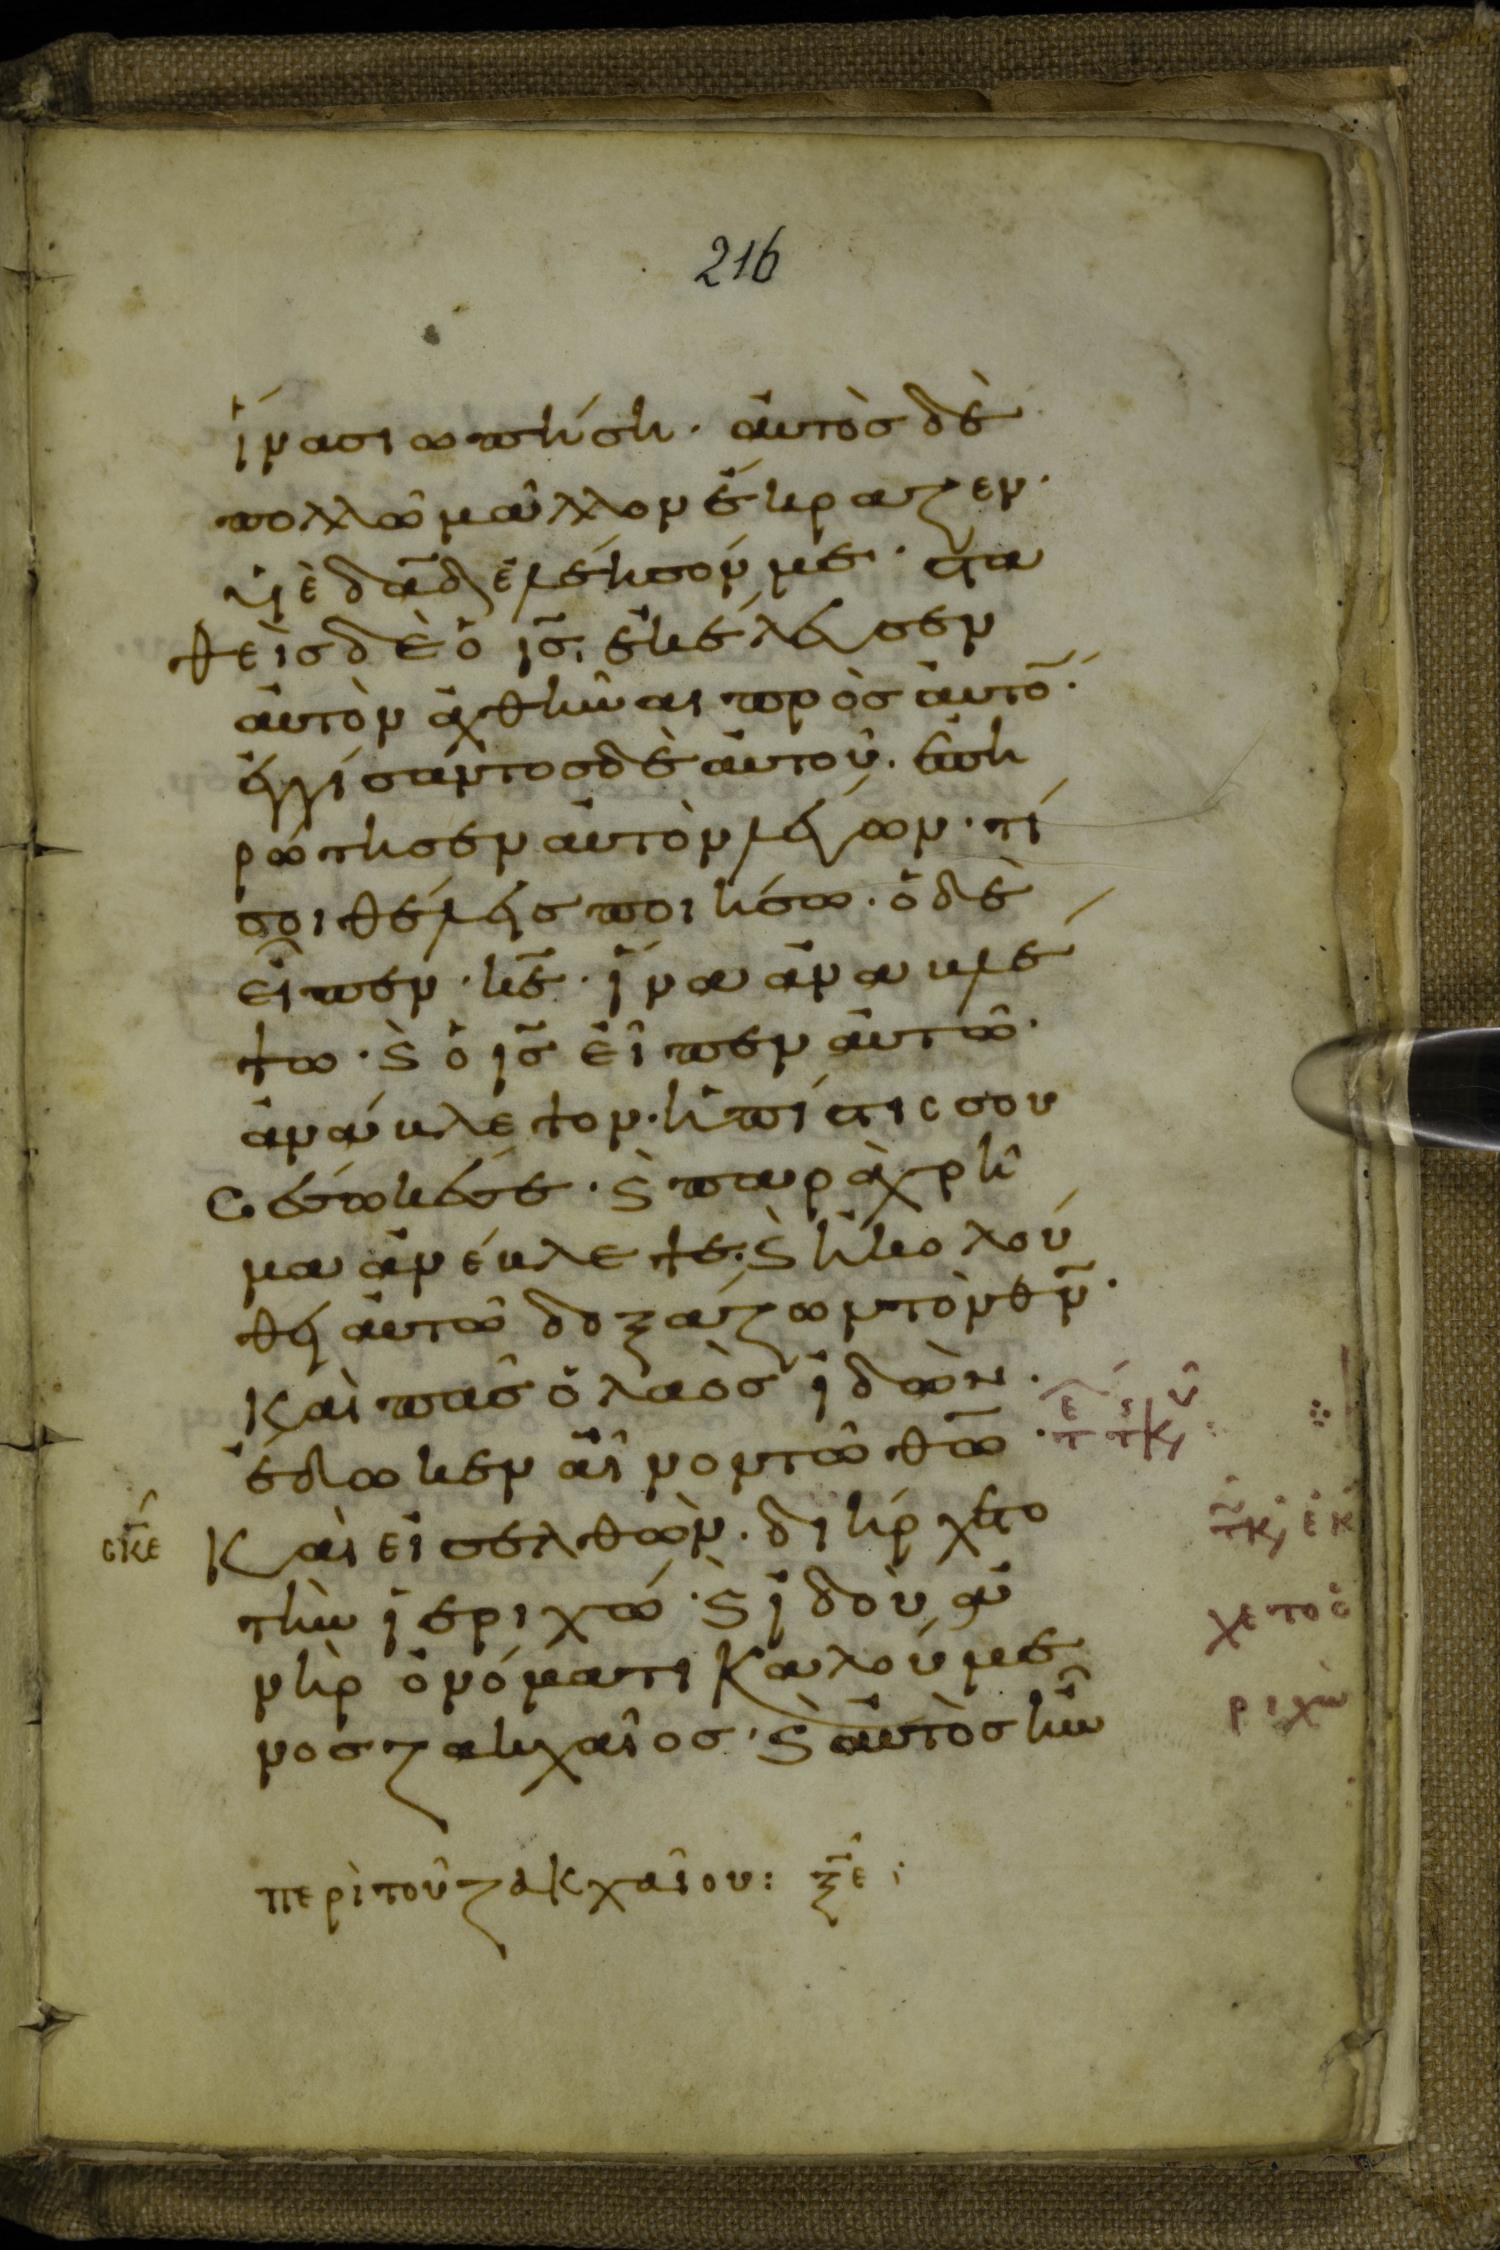 216
ἵνα σιωπήση· αὐτὸς δὲ
πολλῶ μᾶλλον ἔκραζεν·
υἱὲ δᾱδ ἐλέησόν με· στα
θεὶς δὲ ὁ ις̄, ἐκέλευσεν
αὐτὸν ἀχθῆναι πρὸς αὐτό̄·
ἐγγίσαντος δὲ αὐτοῦ. ἐπη
ρώτησεν αὐτὸν λέγων· τί
σοι θέλεις ποιήσω· ὁ δὲ
εἶπεν· κε̄· ἵνα ἀναβλέ
ψω· ϛ ὁ ις̄ εἶπεν αὐτῶ·
ἀνάβλεψον· ἡ πίστις σου
σέσωκέ σε· ϛ παραχρῆ
μα ἀνέβλεψε· ϛ ἠκολού
θει αὐτῶ δοξάζων τὸν θν̄·
καὶ πᾶς ὁ λαὸς ἰδὼν·
ἔδωκεν αἶνον τῶ θω̄·
σκε Καὶ εἰσελθὼν· διήρχετο
τὴν ἱεριχώ· ϛ ἰδοὺ ἀ
νὴρ ὀνόματι καλούμε
νος ζακχαῖος· ϛ αὐτὸς ἦν
περὶ τοῦ ζακχαίου: ξε
χετο ὁ
ριχὼ